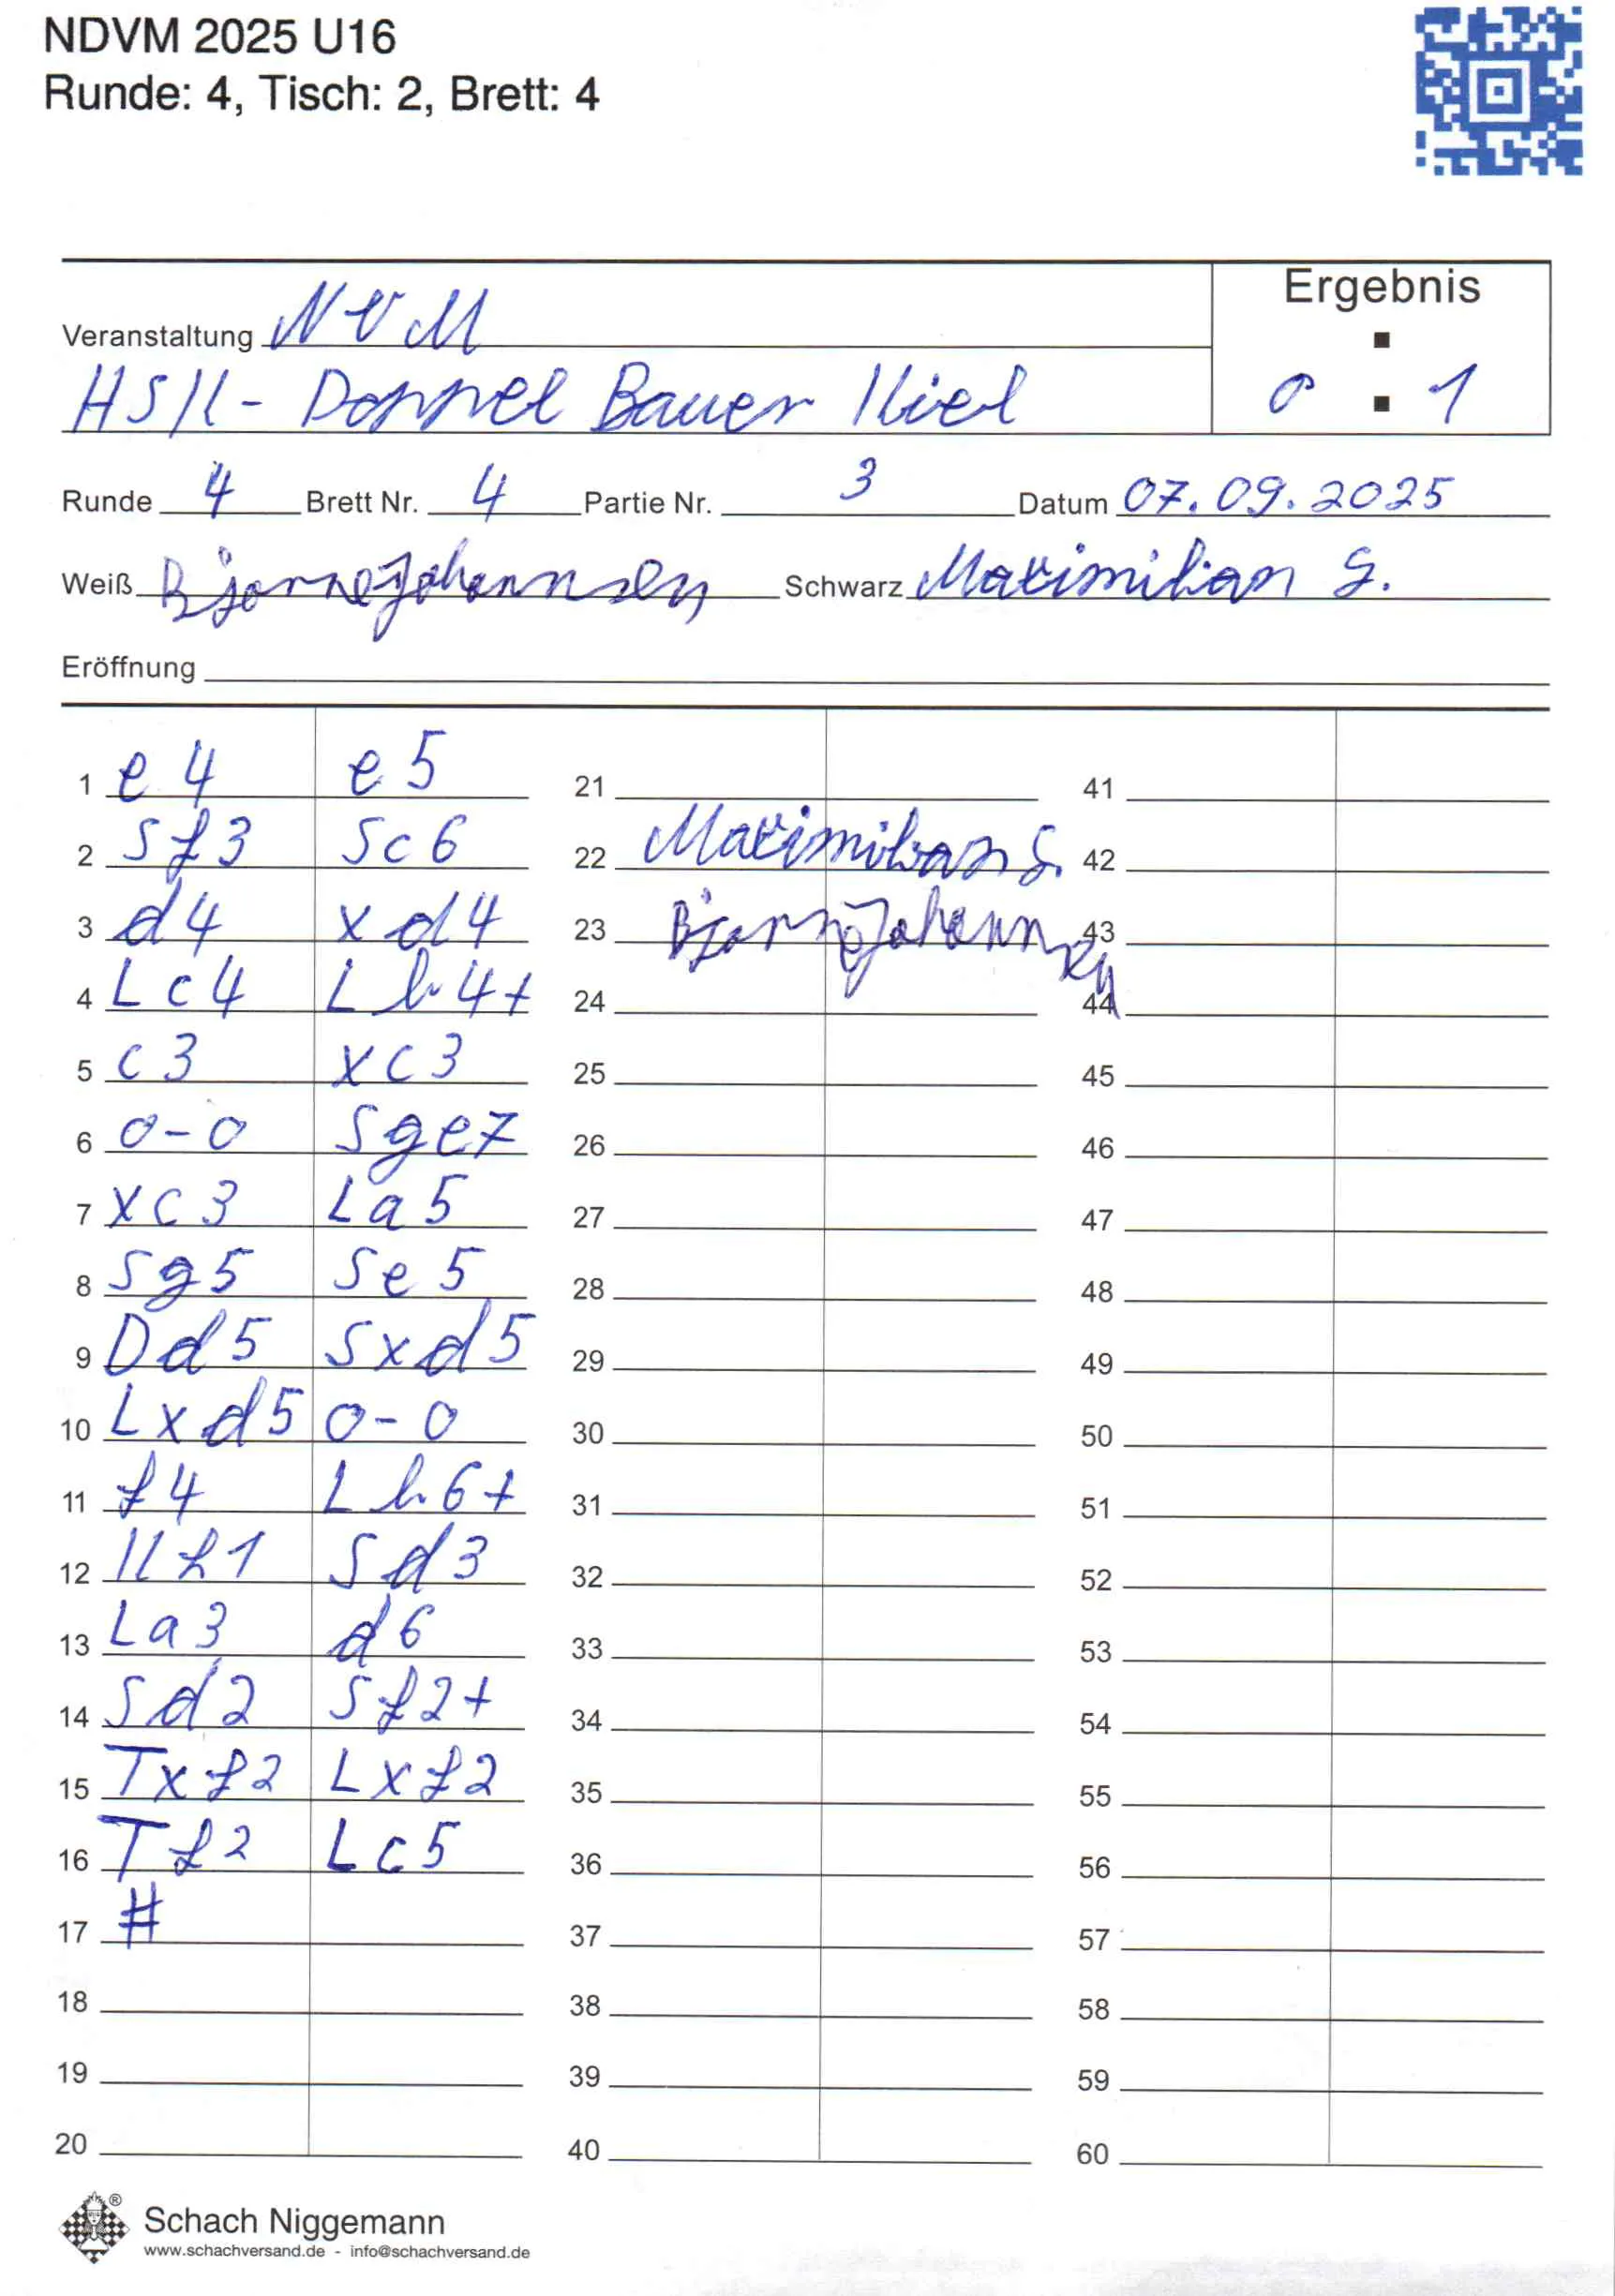 NDVM 2025 U16
Runde: 4, Tisch: 2, Brett: 4
Ergebnis
Veranstaltung NVM
:
HSK - Doppel Bauer Kiel
0 : 1
Runde 4 Brett Nr. 4 Partie Nr. 3 Datum 07.09.2025
Weiß Bjarne Johannsen Schwarz Maximilian G.
Eröffnung
1 e4 e5 21 41
2 Sf3 Sc6 22 Maximilian G. 42
3 d4 xd4 23 Bjarne Johannsen 43
4 Lc4 Lb4+ 24 44
5 c3 xc3 25 45
6 0-0 Sge7 26 46
7 xc3 La5 27 47
8 Sg5 Se5 28 48
9 Dd5 Sxd5 29 49
10 Lxd5 0-0 30 50
11 f4 Lb6+ 31 51
12 Kh1 Sd3 32 52
13 La3 d6 33 53
14 Sd2 Sf2+ 34 54
15 Txf2 Lxf2 35 55
16 Tf2 Lc5 36 56
17 # 37 57
18 38 58
19 39 59
20 40 60
®
Schach Niggemann
www.schachversand.de - info@schachversand.de